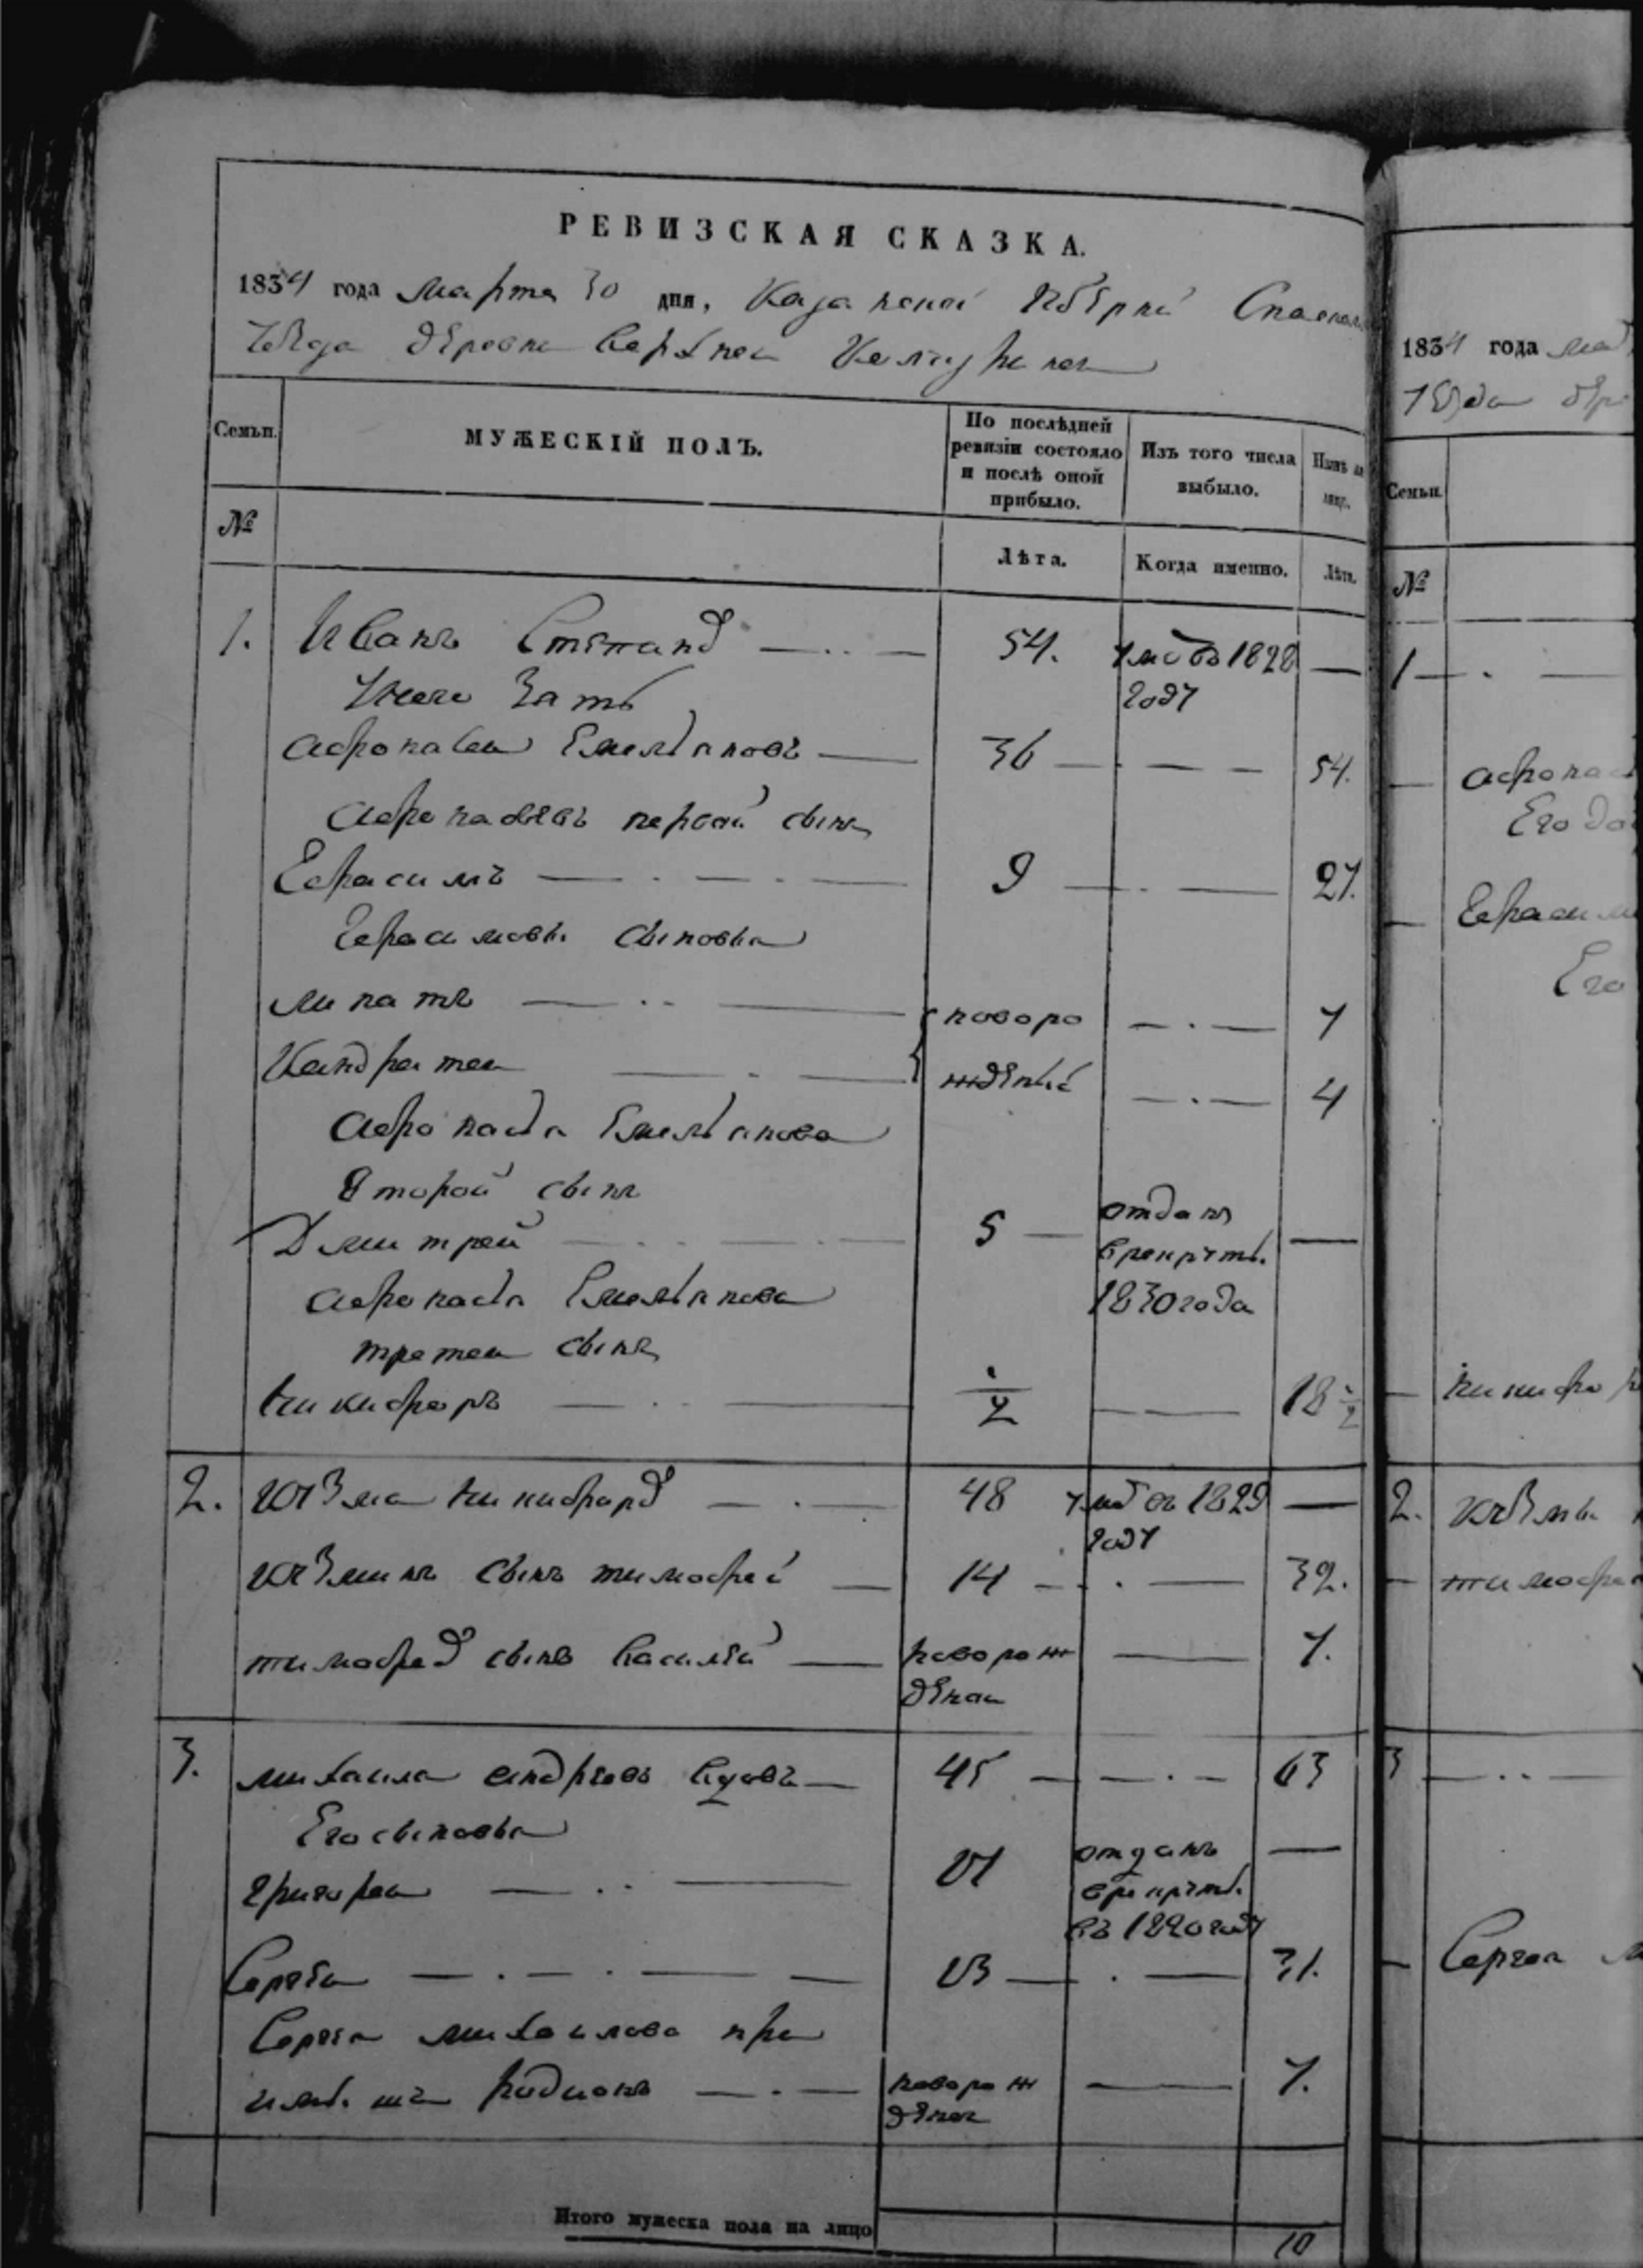 РЕВИЗСКАЯ СКАЗКА.
1834 года марта 30 дня, Казанской Губерній Спаской
Уѣзда деревни Верхней
Семьи. МУЖЕСКІЙ ПОЛЪ. По послѣдней ревизіи состояло и послѣ оной прибыло. Изъ того числа выбыло. Нынѣ на лицо.
№ Лѣта. Когда именно. Лѣта.
1. Иванъ Степанов 54. умѐ въ 1828 году —
Ивана Зять
Афонасеи Емельяновъ 36 54.
Афонасьевъ первой сынъ
Ефрасимъ 9 27.
Ефрасимовы сыновья
липатъ новоро 7
Кандратеи ждены 4
Афонасья Емельянова
второй сынъ
Дмитрей 5 отданъ в рекруты. 1830 года —
Афонасья Емельянова
третеи сынъ
никифоръ ½ 18 ½
2. Кузма никифоров 48 умѐ въ 1829 году —
Кузминъ сынъ тимофеі 14 32.
тимофеев сынъ василѣй новорожденои 7.
3. михаила андреевъ 45 63
Его сыновья
григореи отданъ в рекруты. въ 1820 году —
Сергѣи 13 31.
Сергѣя михаилова при
Радионъ новорожденои 7.
Итого мужеска пола на лицо 10
1834 года
Уѣзда
Семьи.
№
1
Афонас
Его
Ефрасим
Его
никифор
2. Кузмы
тимофе
3
Сергея